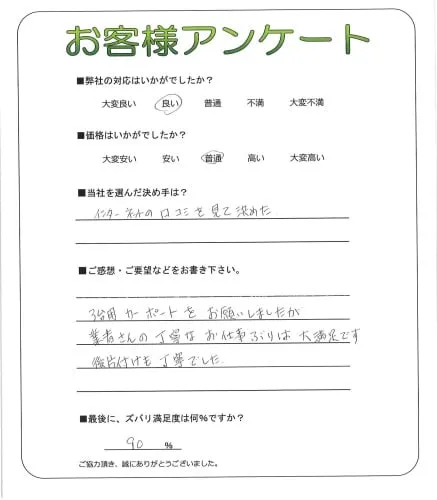 お客様アンケート
■弊社の対応はいかがでしたか？
大変良い 良い 普通 不満 大変不満
■価格はいかがでしたか？
大変安い 安い 普通 高い 大変高い
■当社を選んだ決め手は？
インターネットの口コミを見て決めた
■ご感想・ご要望などをお書き下さい。
3台用カーポートをお願いしましたが
業者さんの丁寧なお仕事ぶりは大満足です
後片付けも丁寧でした.
■最後に、ズバリ満足度は何%ですか？
90 %
ご協力頂き、誠にありがとうございました。